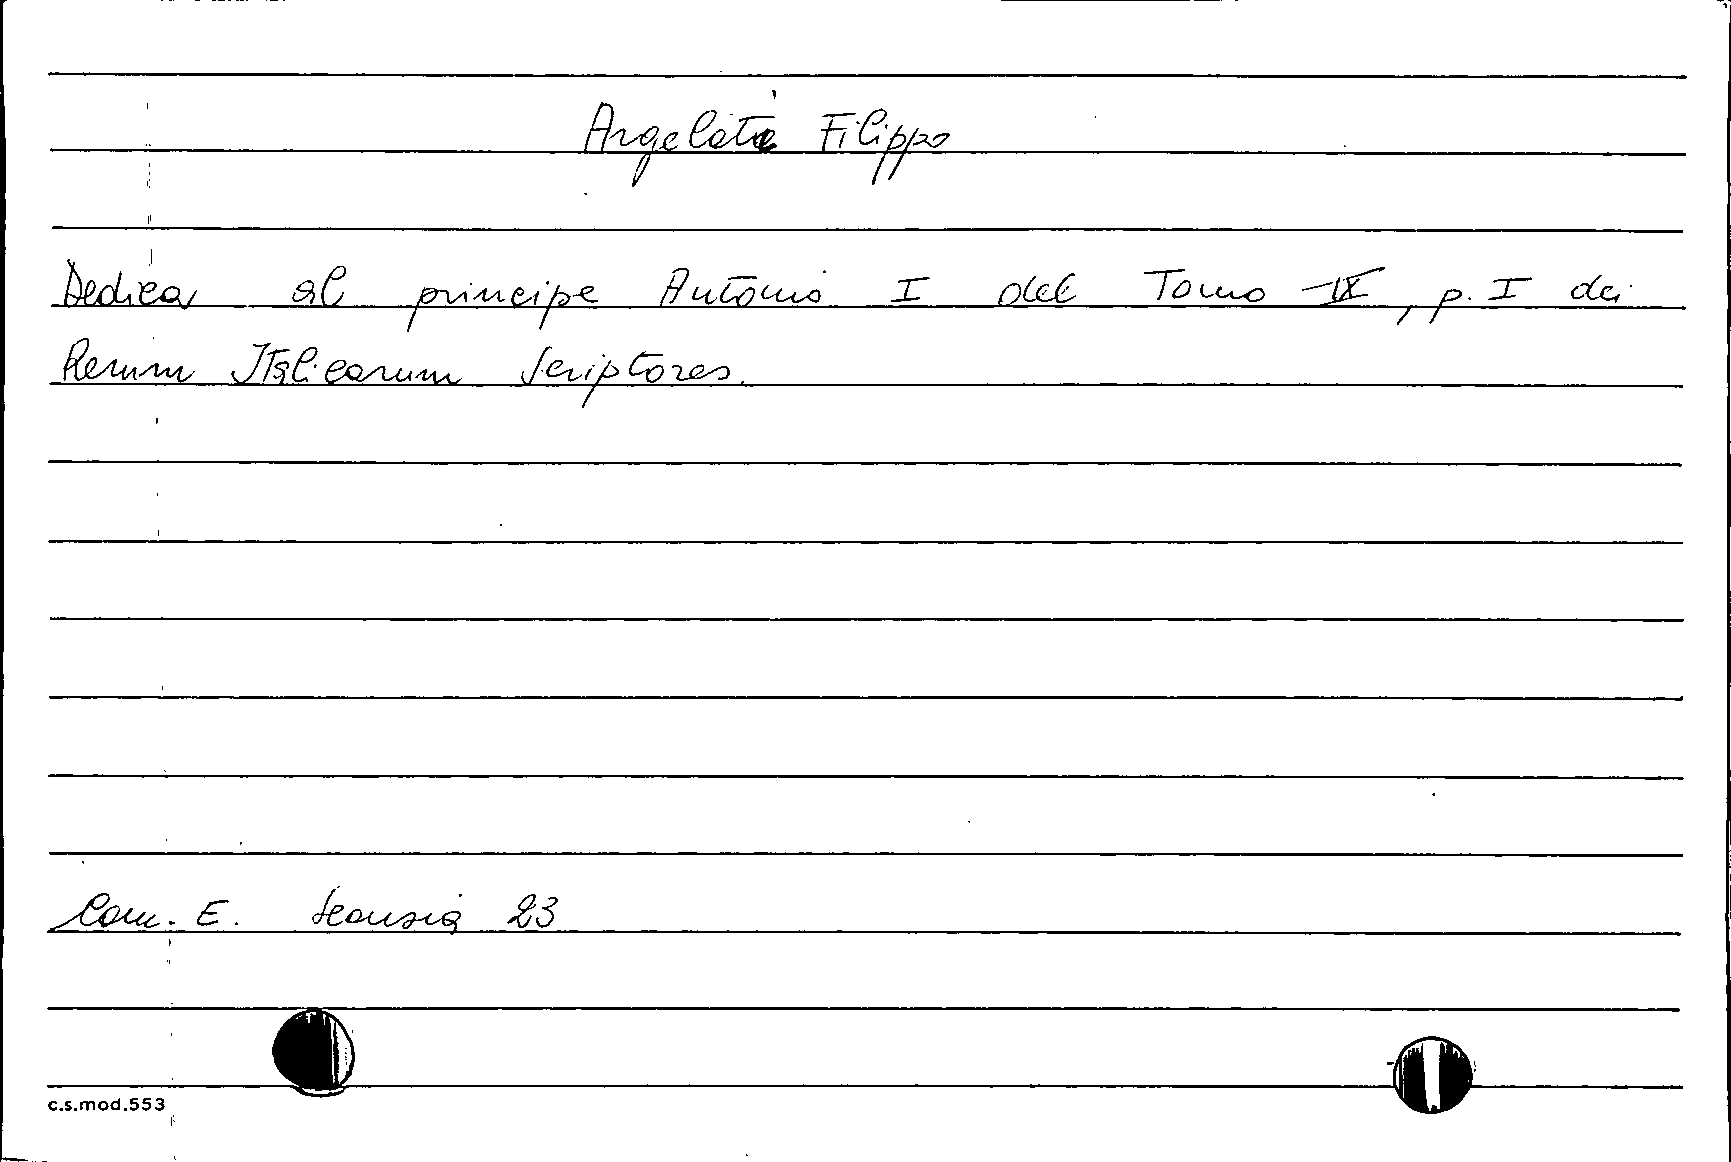 Argelati Filippo
Dedica al principe Antonio I del Tomo IX, p. I dei
Rerum Italicarum Scriptores.
Com. E. Scansia 23
c.s.mod.553